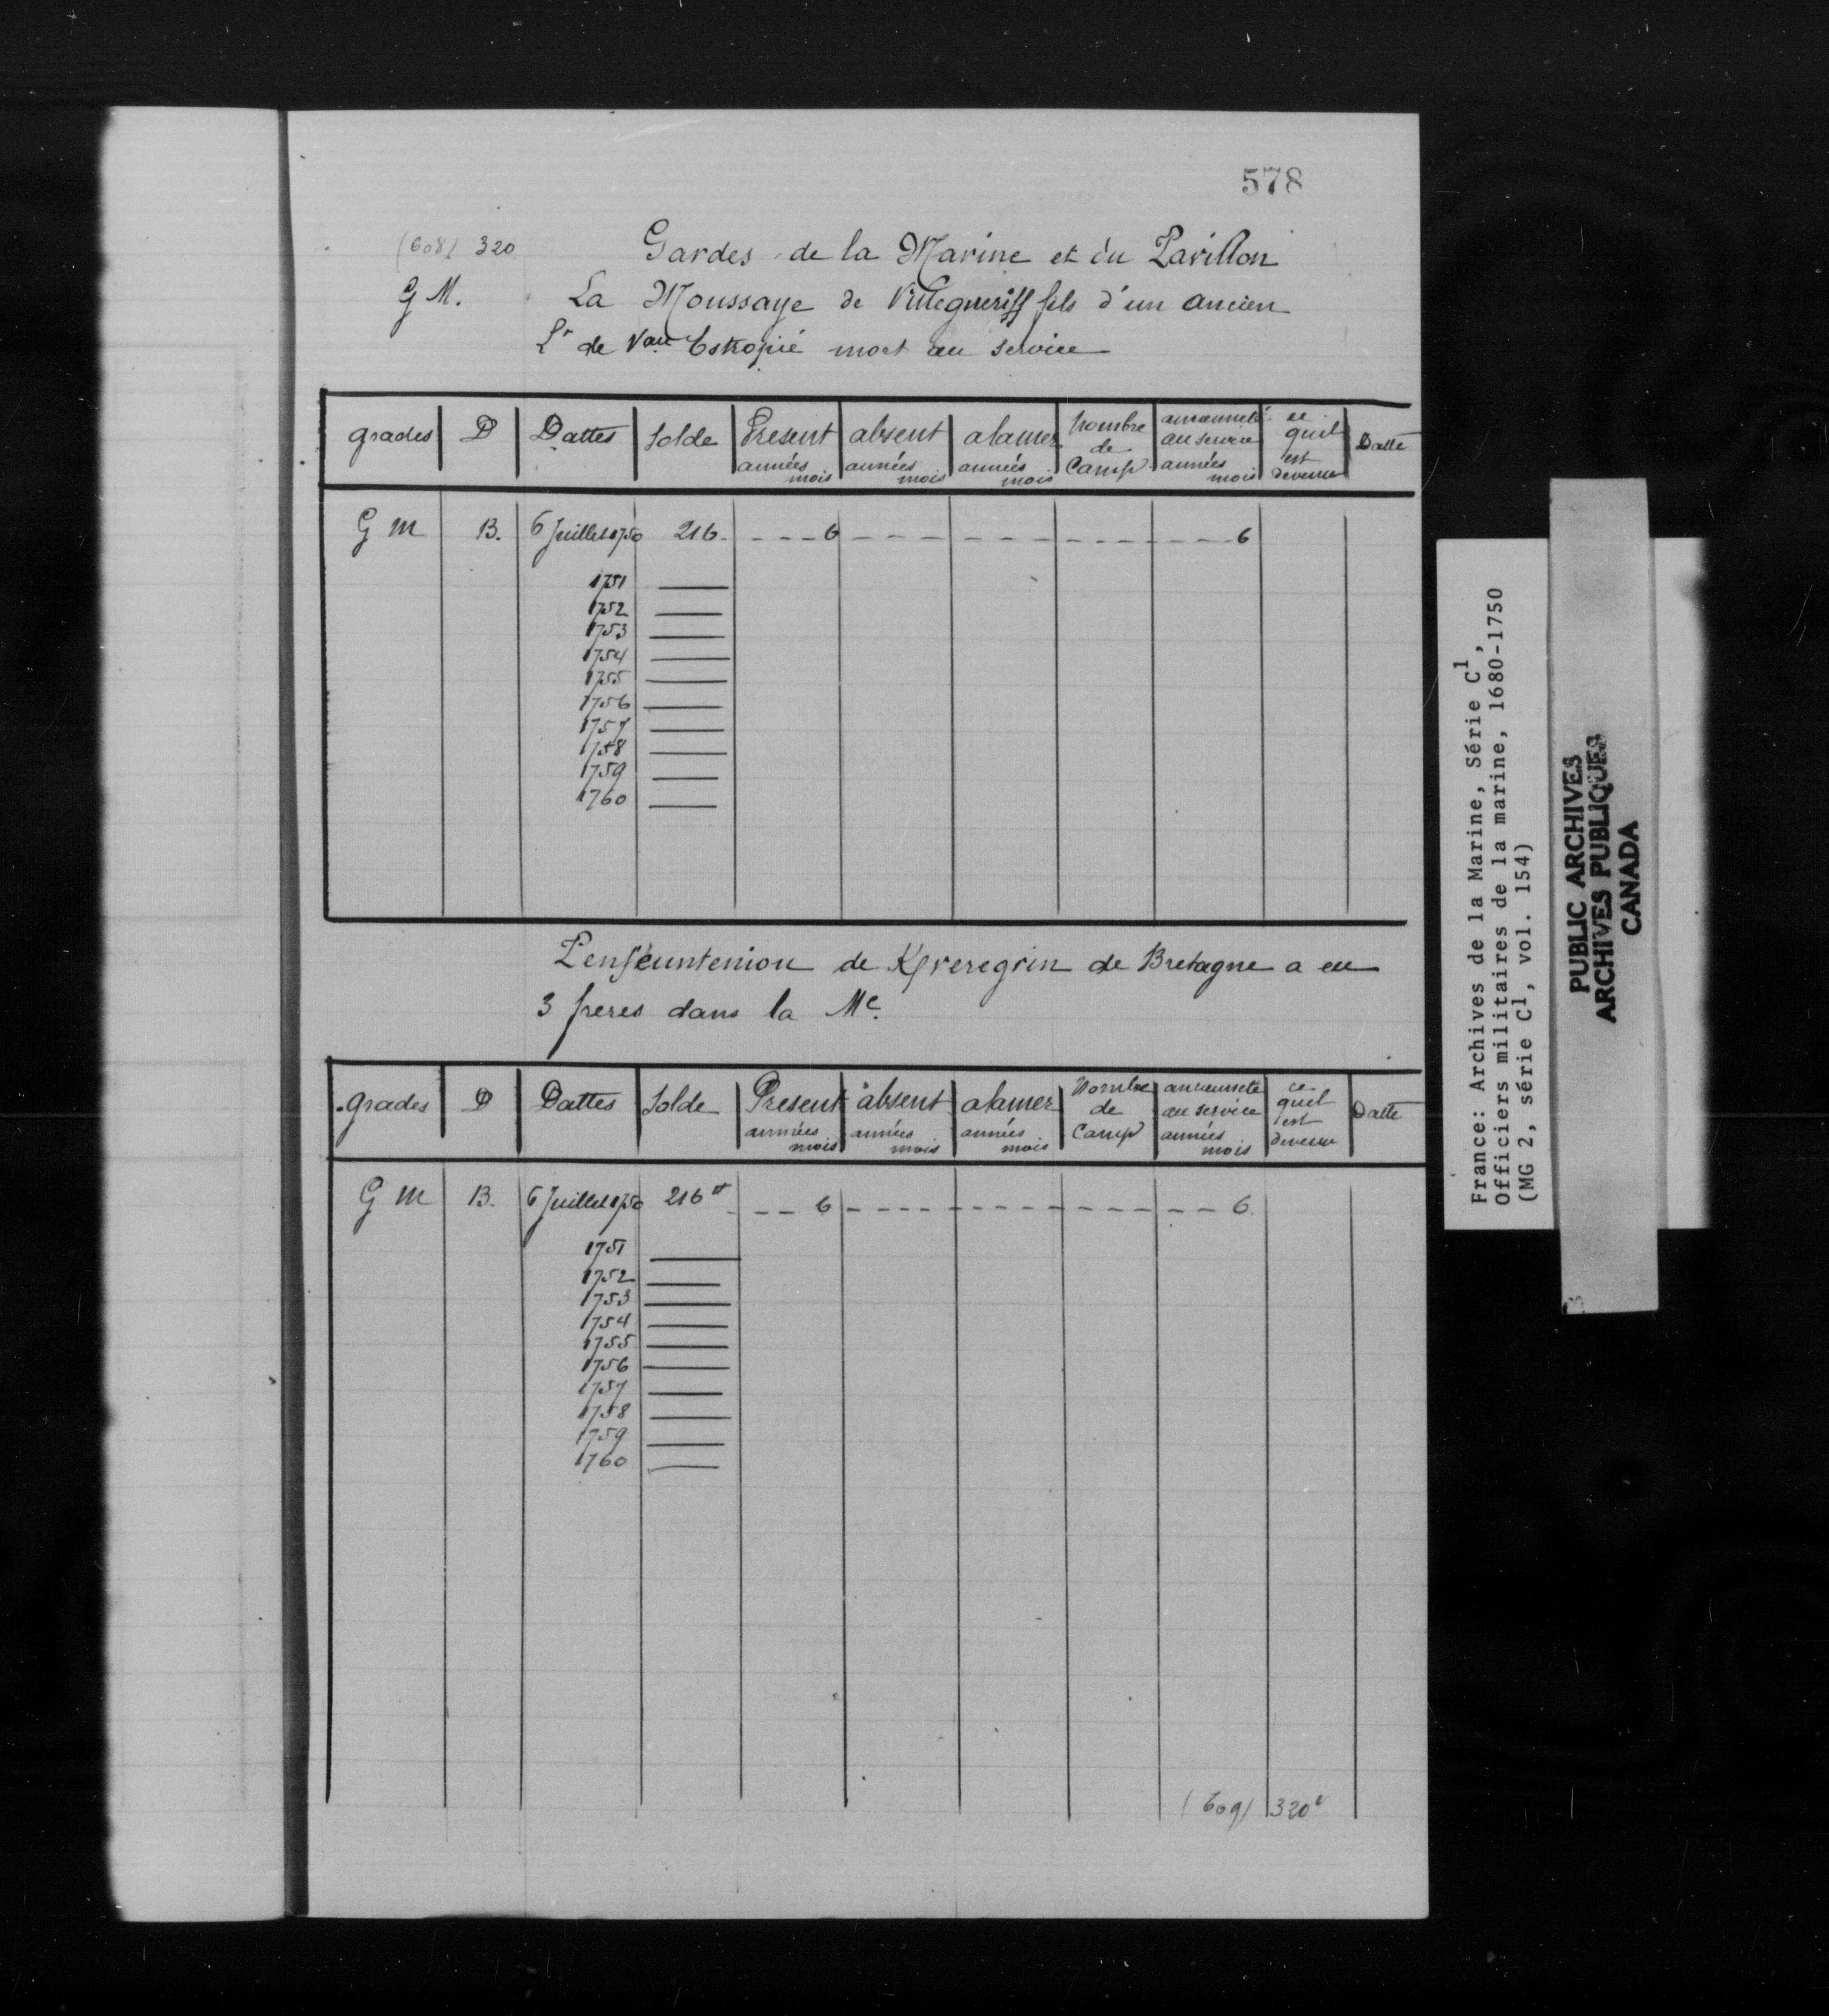 578
(608) 320
Gardes de la Marine et du Pavillon
G M.
La Moussaye de Villegueriff fils d'un ancien
Lr de Vau Estropié mort au service
grades | D | Dattes | Solde | Present années mois | absent années mois | alamer années mois | Nombre de Camp | ancienneté au service années mois | ce quil est devenu | Datte
G M | B. | 6 Juillet 1750 | 216 | 6 | 6
1751
1752
1753
1754
1755
1756
1757
1758
1759
1760
de Kpreregrin de Bretagne a eu
3 freres dans la Me.
grades | D | Dattes | Solde | Present années mois | absent années mois | alamer années mois | Nombre de Camp | ancienneté au service années mois | ce quil est devenu | Datte
G M | B. | 6 Juillet 1750 | 216# | 6 | 6
1751
1752
1753
1754
1755
1756
1757
1758
1759
1760
(609) 320v
France: Archives de la Marine, Série C1,
Officiers militaires de la marine, 1680-1750
(MG 2, série C1, vol. 154)
PUBLIC ARCHIVES
ARCHIVES PUBLIQUES
CANADA